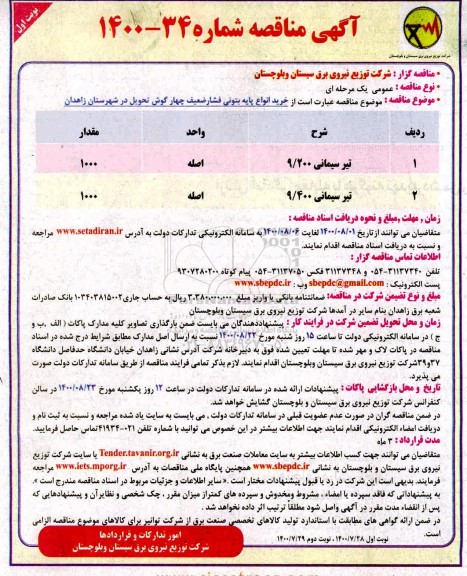 نوبت اول
آگهی مناقصه شماره ۳۴-۱۴۰۰
شرکت توزیع نیروی برق سیستان و بلوچستان
• مناقصه گزار : شرکت توزیع نیروی برق سیستان وبلوچستان
• نوع مناقصه : عمومی یک مرحله ای
• موضوع مناقصه : موضوع مناقصه عبارت است از خرید انواع پایه بتونی فشارضعیف چهار گوش تحویل در شهرستان زاهدان
ردیف شرح واحد مقدار
۱ تیر سیمانی ۹/۲۰۰ اصله ۱۰۰۰
۲ تیر سیمانی ۹/۴۰۰ اصله ۱۰۰۰
زمان , مهلت ,مبلغ و نحوه دریافت اسناد مناقصه :
متقاضیان می توانند ازتاریخ ۱۴۰۰/۰۸/۰۱ لغایت ۱۴۰۰/۰۸/۰۶ به سامانه الکترونیکی تدارکات دولت به آدرس www.setadiran.ir مراجعه
و نسبت به دریافت اسناد مناقصه اقدام نمایند.
اطلاعات تماس مناقصه گزار :
تلفن ۳۱۱۳۷۳۴۰-۰۵۴ و ۳۱۱۳۷۳۴۸ فکس ۳۱۱۳۷۰۵۰-۰۵۴ پیام کوتاه ۹۳۰۷۲۸۰۲۰۰
پست الکترونیک : sbepdc@gmail.com وب : www.sbepdc.ir
مبلغ و نوع تضمین شرکت در مناقصه: ضمانتنامه بانکی یا واریز مبلغ ۳.۳۸۰.۰۰۰.۰۰۰ ریال به حساب جاری ۰۱۰۳۴۰۳۸۱۵۰۰۲ بانک صادرات
شعبه برق زاهدان بنام سایر در آمدها شرکت توزیع نیروی برق سیستان وبلوچستان
زمان و محل تحویل تضمین شرکت در فرایند کار : پیشنهاددهندگان می بایست ضمن بارگذاری تصاویر کلیه مدارک پاکات ( الف ,ب و
ج ) در سامانه الکترونیکی دولت تا ساعت ۱۵ روز شنبه مورخ ۱۴۰۰/۰۸/۲۲ نسبت به ارسال اصل مدارک مطابق شرایط درج شده در اسناد
مناقصه در پاکات لاک و مهر شده تا مهلت تعیین شده فوق به دبیرخانه شرکت آدرس نشانی زاهدان خیابان دانشگاه حدفاصل دانشگاه
۳۷و۳۹شرکت توزیع نیروی برق سیستان وبلوچستان اقدام نمایند. لازم بذکر تمامی فرایند مناقصه از طریق سامانه تدارکات دولت صورت
می پذیرد.
تاریخ و محل بازگشایی پاکات : پیشنهادات ارائه شده در سامانه تدارکات دولت در ساعت ۱۲ روز یکشنبه مورخ ۱۴۰۰/۰۸/۲۳ در سالن
کنفرانس شرکت توزیع نیروی برق سیستان و بلوچستان گشایش خواهد شد.
در ضمن مناقصه گران در صورت عدم عضویت قبلی در سامانه تدارکات دولت , می بایست به سایت یاد شده مراجعه و نسبت به ثبت نام و
دریافت امضاء الکترونیکی اقدام نمایند جهت اطلاعات بیشتر در این خصوص می توانید با شماره تلفن ۰۲۱-۴۱۹۳۴تماس حاصل فرمایید.
مدت قرارداد : ۳ ماه
متقاضیان می توانند جهت کسب اطلاعات بیشتر به سایت معاملات صنعت برق به نشانی Tender.tavanir.org.ir یا سایت شرکت توزیع
نیروی برق سیستان و بلوچستان به نشانی www.sbepdc.ir همچنین پایگاه ملی مناقصات به آدرس www.iets.mporg.ir مراجعه
فرمایند. بدیهی است این شرکت در رد یا قبول پیشنهادات مختار است .« سایر اطلاعات و جزئیات مربوط در اسناد مناقصه مندرج است ».
به پیشنهاداتی که فاقد سپرده یا امضاء , مشروط ومخدوش و سپرده های کمتراز میزان مقرر , چک شخصی و نظایرآن و پیشنهادهایی که
پس از انقضاء مدت مقرر در آگهی واصل شود مطلقاً ترتیب اثر داده نخواهد شد .
در ضمن ارائه گواهی های مطابقت با استاندارد تولید کالاهای تخصصی صنعت برق از شرکت توانیر برای کالاهای موضوع مناقصه الزامی
است.
نوبت اول ۱۴۰۰/۷/۲۸ ، نوبت دوم ۱۴۰۰/۷/۲۹
امور تدارکات و قراردادها
شرکت توزیع نیروی برق سیستان وبلوچستان